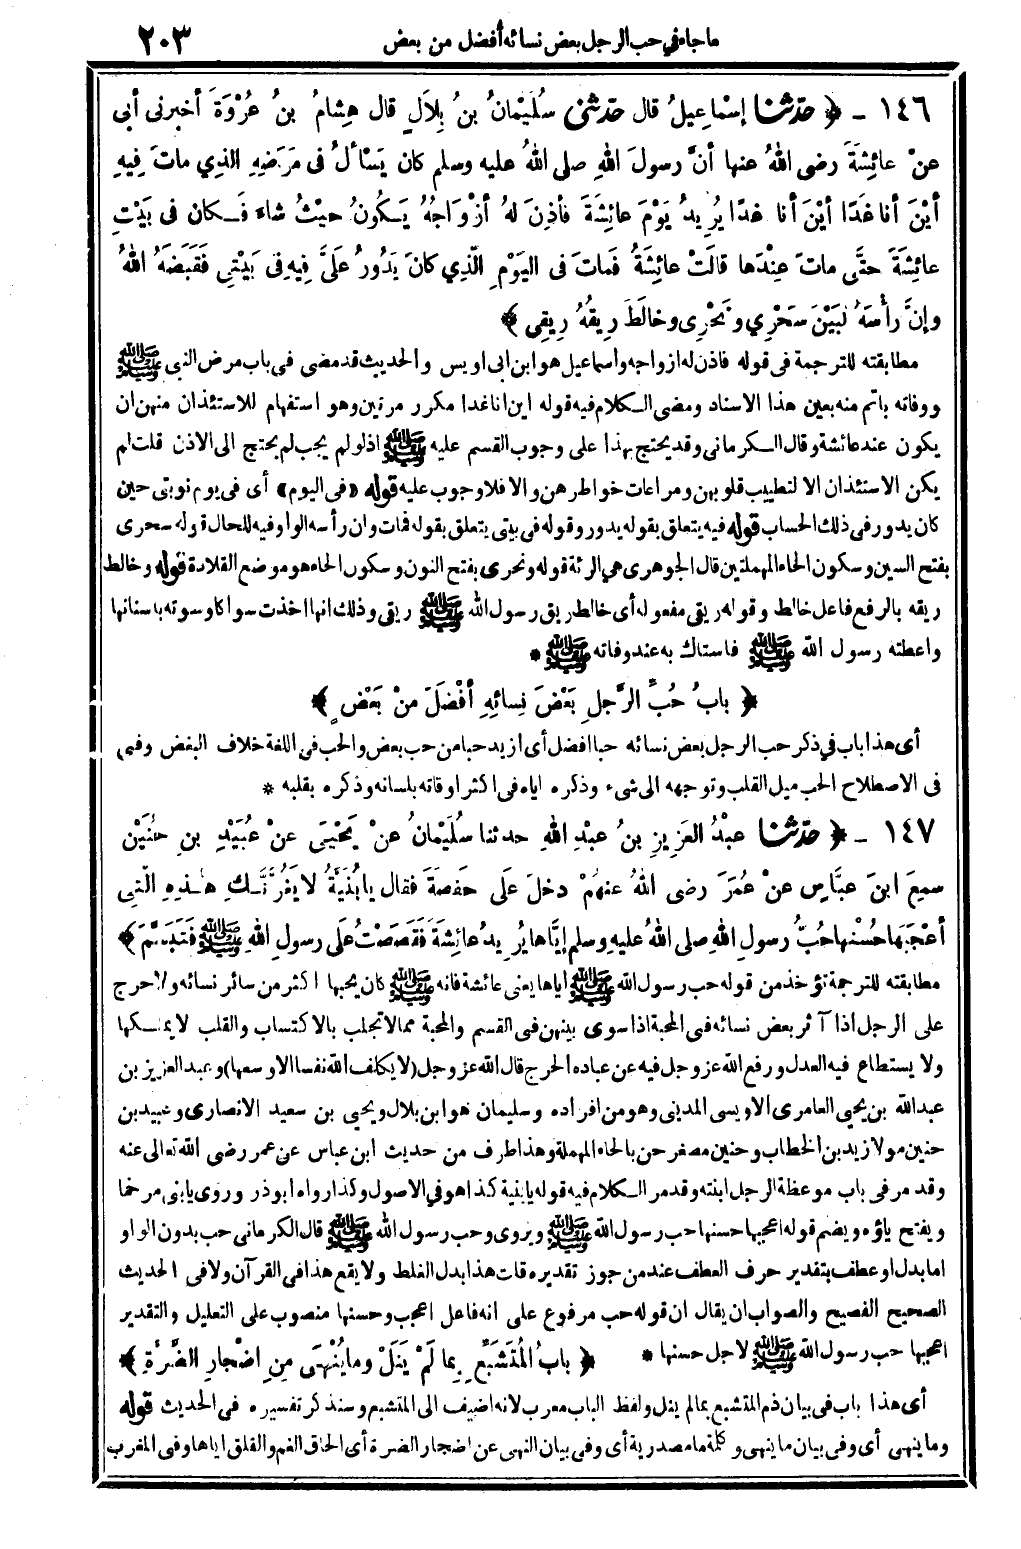 ماجاء في حب الرجل بعض نسائه أفضل من بعض ٢٠٣
١٤٦ - ﴿ حدّثنا إسْماعِيلُ قال حدّثني سُلَيْمانُ بنُ بِلاَلٍ قال هِشامُ بنُ عُرْوَةَ أخبرنى أبى
عنْ عائِشَةَ رضى اللهُ عنها أنَّ رسولَ اللهِ صلى اللهُ عليه وسلم كان يَسْألُ فى مَرَضِهِ الذِي ماتَ فِيهِ
أيْنَ أنا غَدًا أيْنَ أنا غدًا يُرِيدُ يَوْمَ عائِشَةَ فأذِنَ لهُ أزْوَاجُهُ يَكُونُ حيْثُ شاءَ فَكان فى بَيْتِ
عائِشَةَ حتَّى ماتَ عِنْدَها قالَتْ عائِشَةُ فَماتَ فى اليَوْمِ الّذِي كانَ يَدُورُ علَىَّ فِيهِ فى بَيْتِى فَقَبَضَهُ اللهُ
وإنَّ رأْسَهُ لَبَيْنَ سَحْرِي ونَحْرِى وخالَطَ رِيقُهُ رِيقِى ﴾
مطابقته للترجمة فى قوله فاذن له ازواجه واسماعيل هو ابن ابى اويس والحديث قد مضى فى باب مرض النبى ﷺ
ووفاته باتم منه بعين هذا الاسناد ومضى الكلام فيه قوله اين اناغدا مكرر مرتين وهو استفهام للاستئذان منهن ان
يكون عند عائشة وقال الكرمانى وقد يحتج بهذا على وجوب القسم عليه ﷺ اذلو لم يجب لم يحتج الى الاذن قلت لم
يكن الاستئذان الا لتطييب قلوبهن ومراعات خواطرهن والا فلا وجوب عليه قوله «فى اليوم» أى فى يوم نوبتى حين
كان يدور فى ذلك الحساب قوله فيه يتعلق بقوله يدور وقوله فى بيتى يتعلق بقوله فمات وان رأسه الواو فيه للحال قوله سحرى
بفتح السين وسكون الحاء المهملتين قال الجوهرى هى الرئة قوله ونحرى بفتح النون وسكون الحاء هو موضع القلادة قوله وخالط
ريقه بالرفع فاعل خالط وقوله ريقى مفعوله أى خالط ريق رسول الله ﷺ ريقى وذلك انها اخذت سواكا وسوته باسنانها
واعطته رسول الله ﷺ فاستاك به عند وفاته ﷺ *
﴿ بابُ حُبِّ الرَّجلِ بَعْضَ نِسائِهِ أفْضَلَ منْ بَعْضٍ ﴾
أى هذا باب في ذكر حب الرجل بعض نسائه حبا افضل أى ازيد حبا من حب بعض والحب فى اللغة خلاف البغض وفى
فى الاصطلاح الحب ميل القلب وتوجهه الى شىء وذكره اياه فى اكثر اوقاته بلسانه وذكره بقلبه *
١٤٧ - ﴿ حدّثنا عبْدُ العَزِيزِ بنُ عبْدِ اللهِ حدثنا سُلَيْمانُ عنْ يَحْيَى عنْ عُبَيْدِ بنِ حُنَيْنٍ
سمِعَ ابنَ عبَّاسٍ عنْ عُمَرَ رضى اللهُ عنهُمْ دخلَ علَى حَفصةَ فقال يا بُنَيَّةُ لا يَغُرَّنَّكِ هٰذِهِ الّتِى
أعْجَبَها حُسْنُها حُبُّ رسولِ اللهِ صلى اللهُ عليهِ وسلم إيَّاها يُرِيدُ عائِشَةَ فَقَصَصْتُ علَى رسولِ اللهِ ﷺ فَتَبَسَّمَ ﴾
مطابقته للترجمة تؤخذ من قوله حب رسول الله ﷺ اياها يعنى عائشة فانه ﷺ كان يحبها اكثر من سائر نسائه ولا حرج
على الرجل اذا آثر بعض نسائه فى المحبة اذا سوى بينهن فى القسم والمحبة مما لا تجلب بالاكتساب والقلب لا يملكها
ولا يستطاع فيه العدل ورفع الله عز وجل فيه عن عباده الحرج قال الله عز وجل (لا يكلف الله نفسا الا وسعها) وعبد العزيز بن
عبدالله بن يحيى العامرى الاويسى المدينى وهو من افراده وسليمان هو ابن بلال ويحيى بن سعيد الانصارى وعبيد بن
حنين مولا زيد بن الخطاب وحنين مصغر حن بالحاء المهملة وهذا طرف من حديث ابن عباس عن عمر رضى الله تعالى عنه
وقد مر فى باب موعظة الرجل ابنته وقد مر الكلام فيه قوله يابنية كذا هو في الاصول وكذا رواه ابو ذر وروى يا بنى مرخما
ويفتح ياؤه ويضم قوله اعجبها حسنها حب رسول الله ﷺ ويروى وحب رسول الله ﷺ قال الكرمانى حب بدون الواو
اما بدل او عطف بتقدير حرف العطف عند من جوز تقديره قلت هذا بدل الغلط ولا يقع هذا فى القرآن ولا فى الحديث
الصحيح الفصيح والصواب ان يقال ان قوله حب مرفوع على انه فاعل اعجب وحسنها منصوب على التعليل والتقدير
اعجبها حب رسول الله ﷺ لاجل حسنها * ﴿ بابُ المُتَشَبِّعِ بِما لَمْ يَنَلْ وما يُنْهَى مِنِ اضْجارِ الضَّرَّةِ ﴾
أى هذا باب فى بيان ذم المتشبع بمالم ينل ولفظ الباب معرب لانه اضيف الى المتشبع وسنذكر تفسيره فى الحديث قوله
وماينهى أى وفى بيان ما ينهى وكلمة ما مصدرية أى وفى بيان النهى عن اضجار الضرة أى الحاق الغم والقلق اياها وفى المغرب